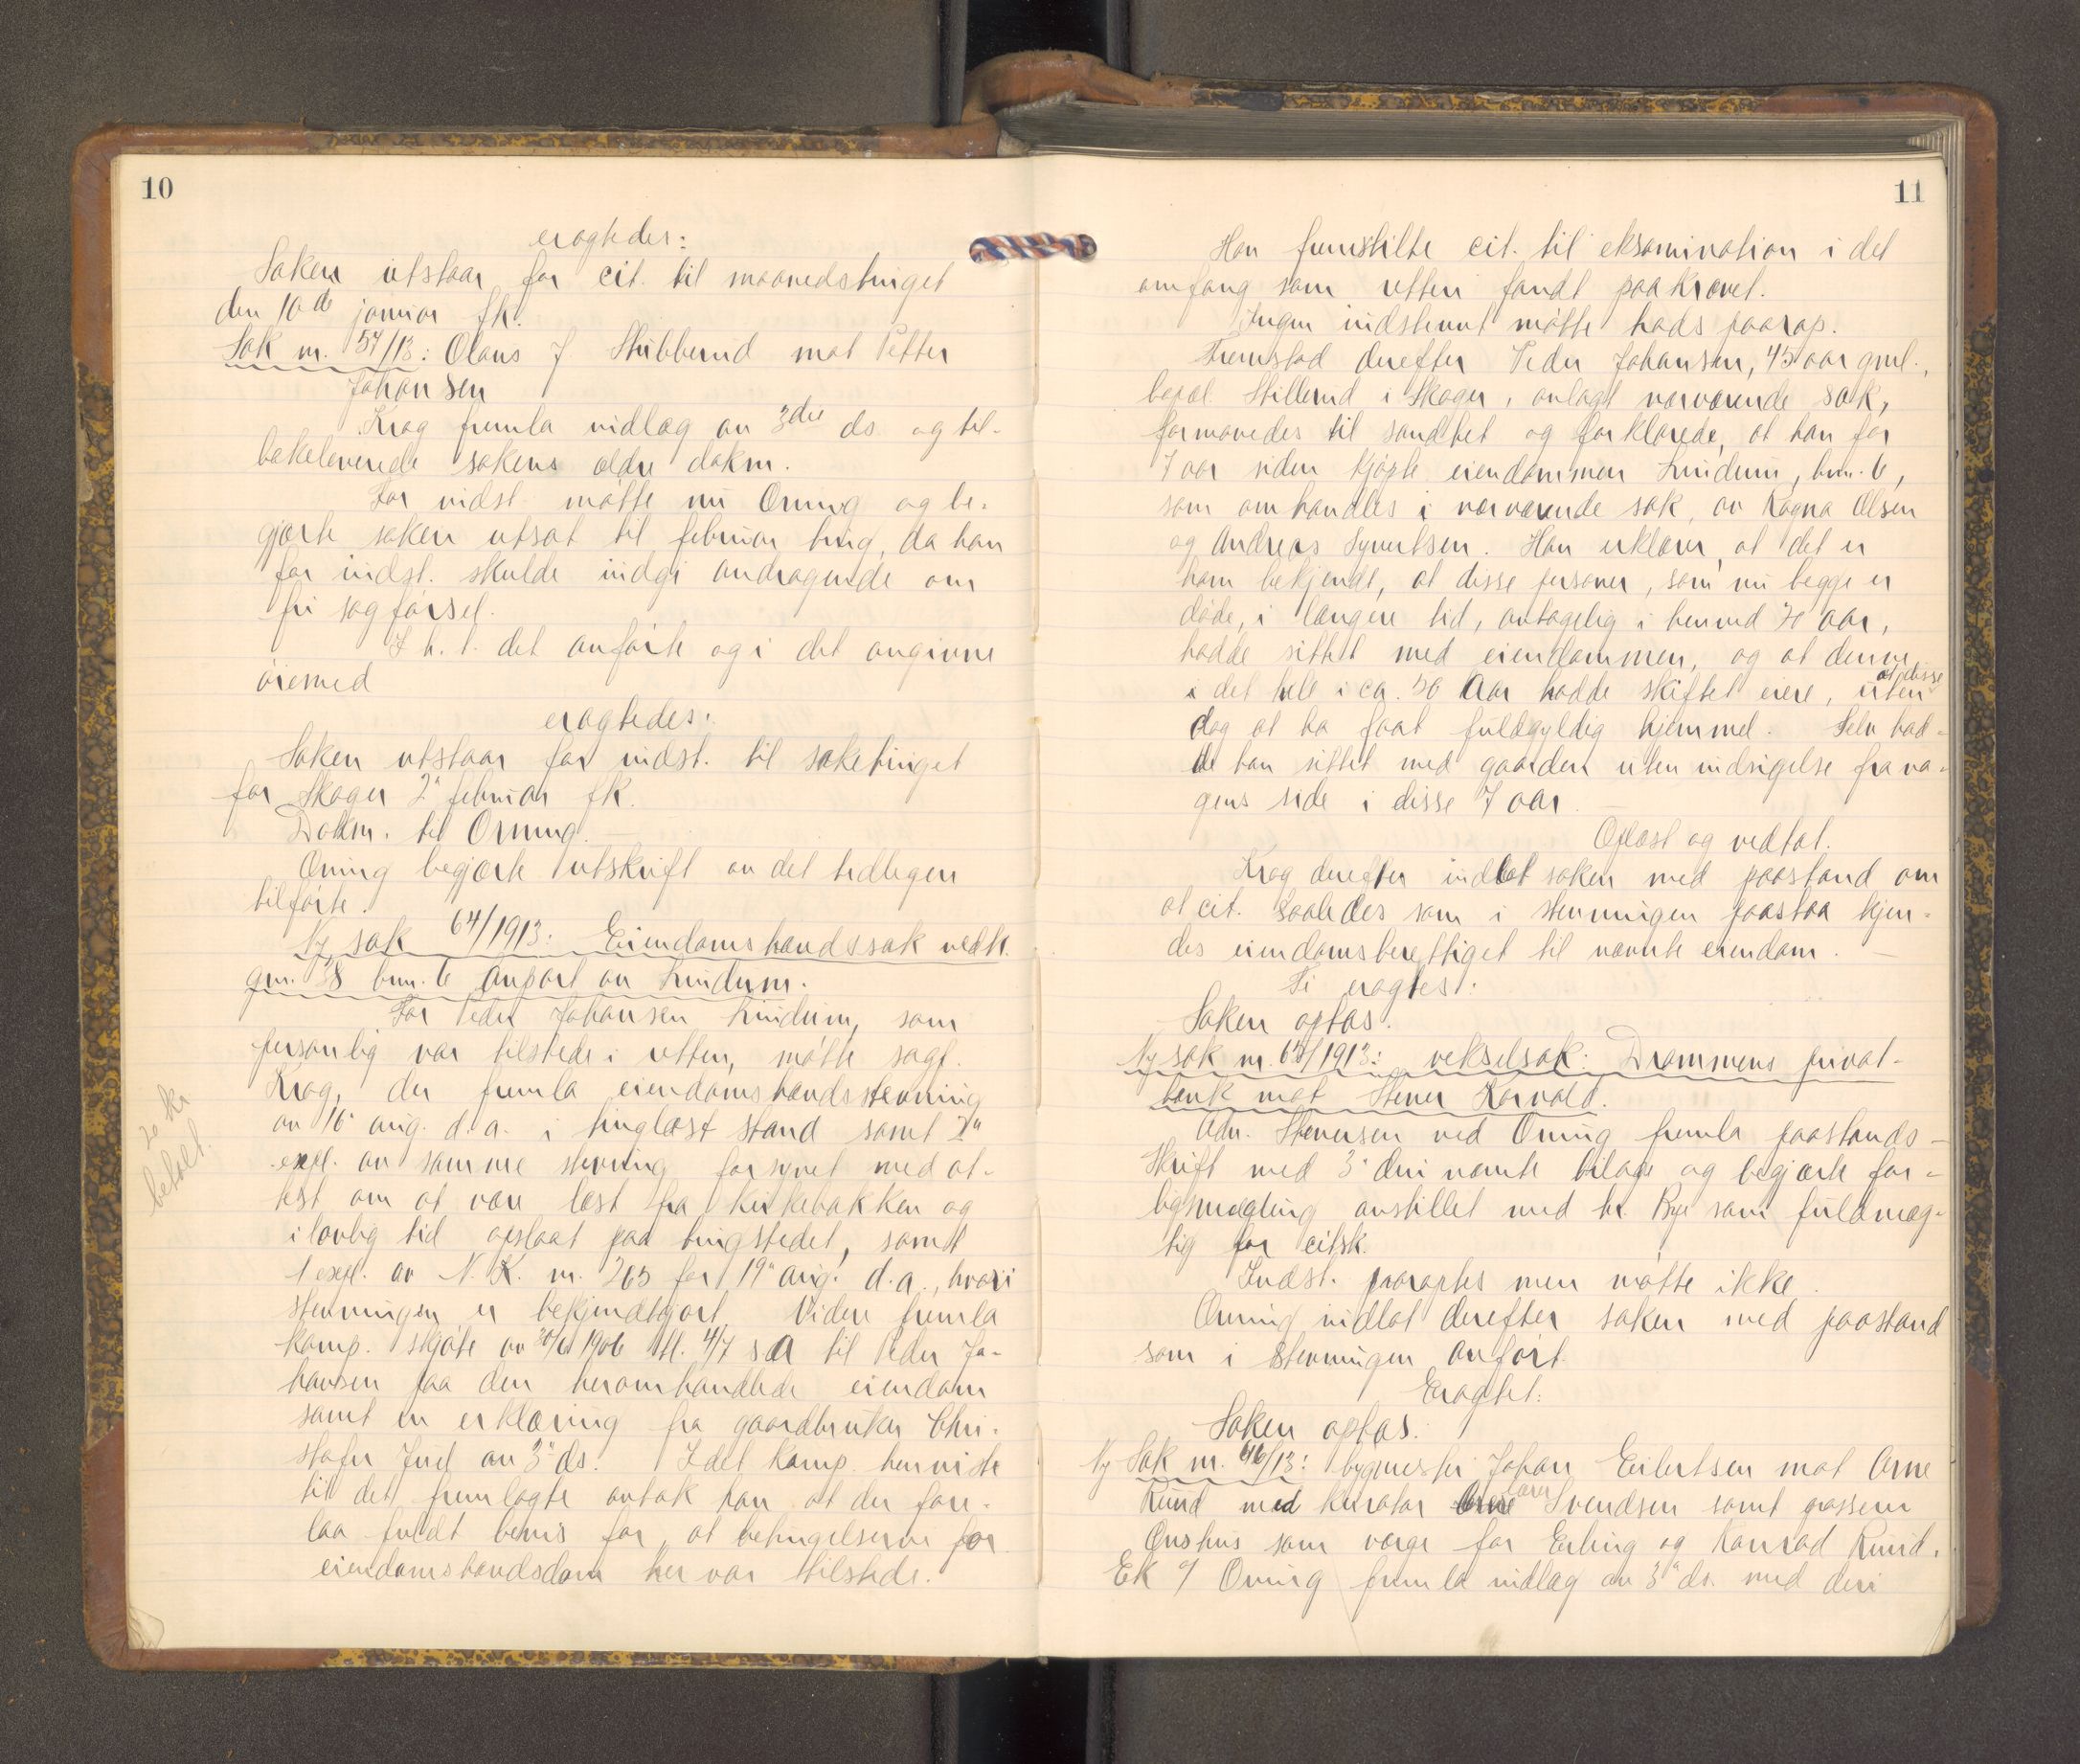 10
eragtedes:
Saken utstaar for cit. til maanedstinget
den 10de januar fk.
Sak nr. 54/13: Olaus J Stubberud mot Petter
Johansen
Krag fremla indlæg av 3die ds og til-
bakeleverede sakens ældre dokm.
For indst. møtte nu Orning og be-
gjærte saken utsat til februar ting, da han
for indst. skulde indgi andragende om
fri sagførsel.
I h. t. det anførte og i det angivne
øiemed
eragtedes:
Saken utstaar for indst. til saketinget
for Skoger 2" februar fk.
Dokm. til Orning.
Orning begjærte utskrift av det tidligere
tilførte.
Ny sak 64/1913: Eiendomshævdssak vedk.
gnr. 38 bnr. 6 anpart av Lindum.
For Peder Johansen Lindum, som
personlig var tilstede i retten, møtte sagf.
Krag, der fremla eiendomshævdsstevning
av 16 aug. d. a. i tinglæst stand samt 2"
expl. av samme stevning forsynet med at-
test om at være læst fra kirkebakken og
i lovlig tid opslaat paa tingstedet, samt
1 expl. av N. K. nr. 265 for 19" aug. d. a., hvori
stevningen er bekjendtgjort. Videre fremla
komp. skjøte av 30/6 1906 tl. 4/7 s a til Peder Jo-
hansen paa den heromhandlede eiendom
samt en erklæring fra gaardbruker Chri-
stofer Juel av 3" ds. Idet komp. henviste
til det fremlagte antok han at der fore-
laa fuldt bevis for, at betingelserne for
eiendomshævdsdom her var tilstede.
20 kr
betalt.
11
Han fremstilte cit. til eksamination i det
omfang som retten fandt paakrævet.
Ingen indstevnt møtte hads paarop.
Fremstod derefter Peder Johansen, 45 aar gml.,
bopæl Stillerud i Skoger, anlagt nærværende sak,
formanedes til sandhet og forklarede, at han for
7 aar siden kjøpte eiendommen Lindum, bnr. 6,
som omhandles i nærværende sak, av Ragna Olsen
og Andreas Syvertsen. Han erklærer, at det er
ham bekjendt, at disse personer, som nu begge er
døde, i længere tid, antagelig i henved 20 aar,
hadde sittet med eiendommen, og at denne
i det hele i ca. 50 aar hadde skiftet eiere, uten at disse
dog at ha faat fuldgyldig hjemmel. Selv had-
de han sittet med gaarden uten indsigelse fra no-
gens side i disse 7 aar.
Oplæst og vedtat.
Krag derefter indlot saken med paastand om
at cit. saaledes som i stevningen paastaa kjen-
des eiendomsberettiget til nævnte eiendom. —
Ti eragtest:
Saken optas.
Ny sak nr. 65/1913: vekselsak: Drammens privat-
bank mot Stener Korvald.
Adv. Stenersen ved Orning fremla paastands-
skrift med 3 deri nævnte bilage og begjærte for-
ligsmægling anstillet med hr. Bye som fuldmæg-
tig for citsk.
Indst. paaroptes men møtte ikke.
Orning indlot derefter saken med paastand
som i stevningen anført.
Eragtet:
Saken optas.
Ny Sak nr. 66/13: bygmester Johan Eilertsen mot Arne
Ruud med kurator lærer Svendsen samt
som værge for Erling og Konrad Ruud.
EK v/ Orning fremla indlæg av 3" ds. med deri